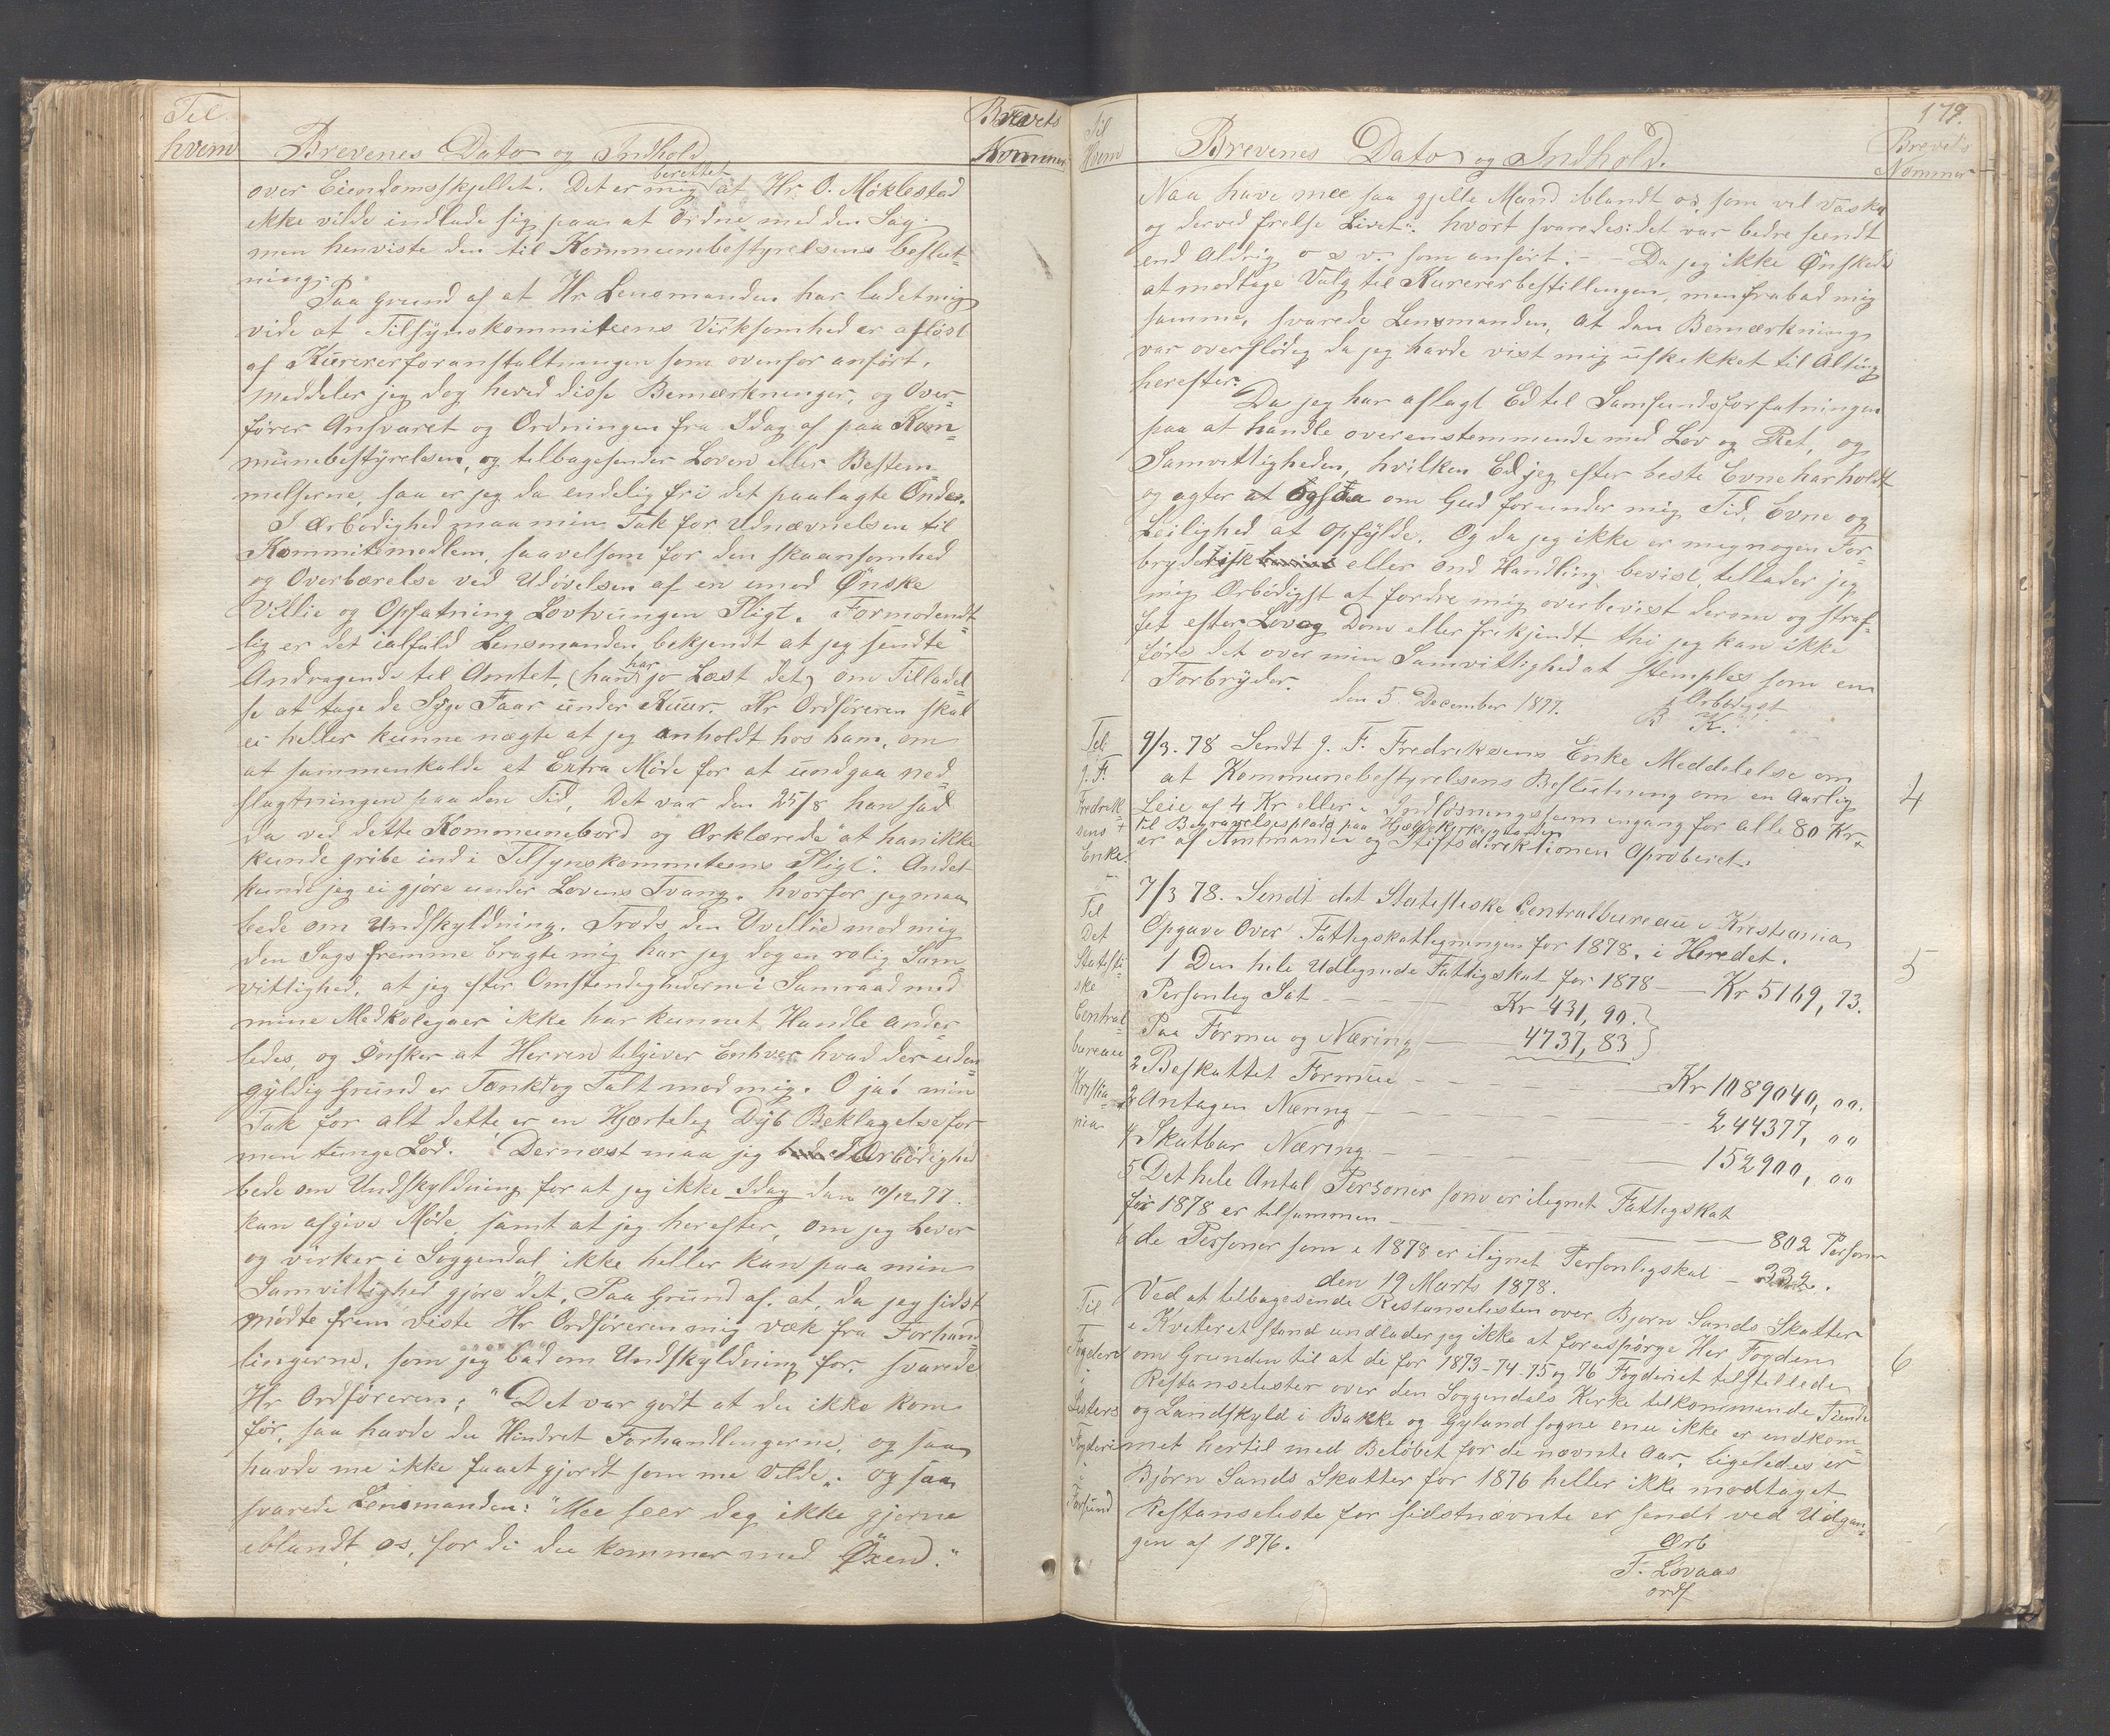 Til
hvem
Brevenes Dato og Indhold
Brevets
Nommer
over Eiendomsskjellet. Det er mig berettet at Hr. O. Møklestad
ikke vilde indlade sig paa at Ordne med den Sag
men henviste den til Kommunebestyrelsens beslut-
ning.
Paa Grund af at Hr Lensmanden har ladet mig
vide at Tilsynskommiteens Virksomhed er afløst
af Kurererforanstaltningen som ovenfor anført,
meddeler jeg dog herved disse Bemærkninger, og Over-
fører Ansvaret og Ordningen fra Idag af paa Kom-
munebestyrelsen, og tilbagesender Loven eller Bestem
melserne, saa er jeg da endelig fri det paalagte Onde.
I Ærbødighed maa min Tak for Udnævnelsen til
Kommitemedlem, saavelsom for den skaansomhed
og Overbærelse ved Udøvelsen af en imod Ønske
Villie og Opfatning Lovtvungen Pligt. Formodent-
lig er det ialfald Lensmanden bekjendt at jeg sendte
Andragende til Amtet, (han har jo Læst det) om Tilladel-
se at tage de Syge Faar under Kuur. Hr Ordføreren skal
ei heller kunne nægte at jeg anholdt hos ham, om
at sammenkalde et Extra Møde for at undgaa ned-
slagtningen paa den Tid, Det var den 25/8 han sad
da ved dette Kommunebord og Ærklærede "at han ikke
kunde gribe ind i Tilsynskommiteens Pligt". Andet
kunde jeg ei gjøre under Lovens Tvang. hvorfor jeg maa
bede om Undskyldning. Trods den Uvillie mod mig
den Sags fremme bragte mig har jeg dog en rolig Sam-
vittighed, at jeg efter Omstendighederne i Samraad med
mine Medkolegaer ikke har kunnet Handle ander-
ledes, og Ønsker at Herren tilgiver Enhver hvad der uden
gyldig Grund er Tænkt og Talt mod mig. O ja! min
Tak for alt dette er en Hjertelig Dyb Beklagelse for
min tunge Lod. Dernæst maa jeg i Ærbødighed
bede om Undskyldning for at jeg ikke Idag den 10/12 77.
kan afgive Møde, samt at jeg herefter, om jeg Lever
og virker i Soggendal ikke heller kan paa min
Samvittighed gjøre det. Paa Grund af. at, da jeg sidst
mødte frem viste Hr Ordføreren mig væk fra Forhand
lingerne, som jeg bad om Undskyldning for. svarede
Hr Ordføreren; "Det var godt at du ikke kom
før, saa havde du Hindret Forhandlingerne, og saa
havde me ikke faaet gjordt som me Vilde". og saa
svarede Lensmanden: "Mee seer deg ikke gjerne
iblandt os, for di du kommer med Øxen."
179.
Til
Hvem
Brevenes Dato og Indhold.
Brevets
Nommer
Naa have mee saa gjelle Mand iblandt os, som vel vaske
og derved frelse Livet". hvort svaredes: det var bedre seendt
end Aldrig o s v. som anført. - - Da jeg ikke Ønskede
at modtage Valg til Kurererbestillingen, men frabad mig
samme, svarede Lensmanden, at dan Bemærkning
var overflødig da jeg havde vist mig uskekket til Alting
herefter.
Da jeg har aflagt Ed til Samfundsforfatningen
paa at handle overenstemmende med Lov og Ret, og
Samvittigheden, hvilken Ed jeg efter beste Evne har holdt
og agter at ogsaa om Gud forunder mig Tid, Evne og
Leilighed at opfylde. Og da jeg ikke er mig nogen For-
brydersk eller ond Handling bevist, tillader jeg
mig Ærbødigst at fordre mig overbevist derom og straf-
fet efter Lov og Dom eller frikjendt, thi jeg kan ikke
føre det over min Samvittighed at stemples som en
Forbryder.
den 5 December 1877. Ærbødigst
B K.
Til
J. F.
Fredrik-
sens
Enke.
9/3. 78 Sendt J. F. Fredriksens Enke Meddelelse om
at Kommunebestyrelsens Beslutning om en Aarlig
Leie af 4 Kr eller i Indløsningssum engang for alle 80 Kr
til Begravelsesplads paa Kirkegaarden
er af Amtmanden og Stiftsdirektionen Aproberet.
4
Til
Det
Statisti-
ske
Central-
bureau
Kristia-
nia
7/3 78. Sendt det Statistiske Centralbureau i Kristiania
Opgave Over Fattigskatligningen for 1878. i Heredet.
5
1 Den hele Udlignede Fattigskat for 1878 — Kr 5169,73.
Personlig Sat - - - Kr 431,90.
Paa Formue og Næring — 4737,83
2 Beskattet Formue - - - - Kr 1089040,00.
3 Antagen Næring - - - - 244377,00
4 Skatbar Næring - - - - 152900,00
5 Det hele Antal Personer som er ilignet Fattigskat
for 1878 er tilsammen - - - 802 Personer
6 de Personer som i 1878 er ilignet Personligskat - 332.
den 19 Marts 1878.
Til
Fogderi
i
Listers
Fogderi
i
Farsund
Ved at tilbagesende Restanselisten over Bjørn Sands Skatter
i Kviteret stand undlader jeg ikke at forespørge Her Fogden
om Grunden til at de for 1873-74-75 og 76 Fogderiet tilstillede
6
Restanselister over den Soggendals Kirke tilkommende Tiende
og Landskyld i Bakke og Gyland sogne enu ikke er indkom-
met hertil med Beløbet for de nævnte Aar, ligeledes er
Bjørn Sands Skatter for 1876 heller ikke modtaget
Restanseliste for sidstnævnte er sendt ved Udgan-
gen af 1876.
Ærb
T. Løvaas
ordf